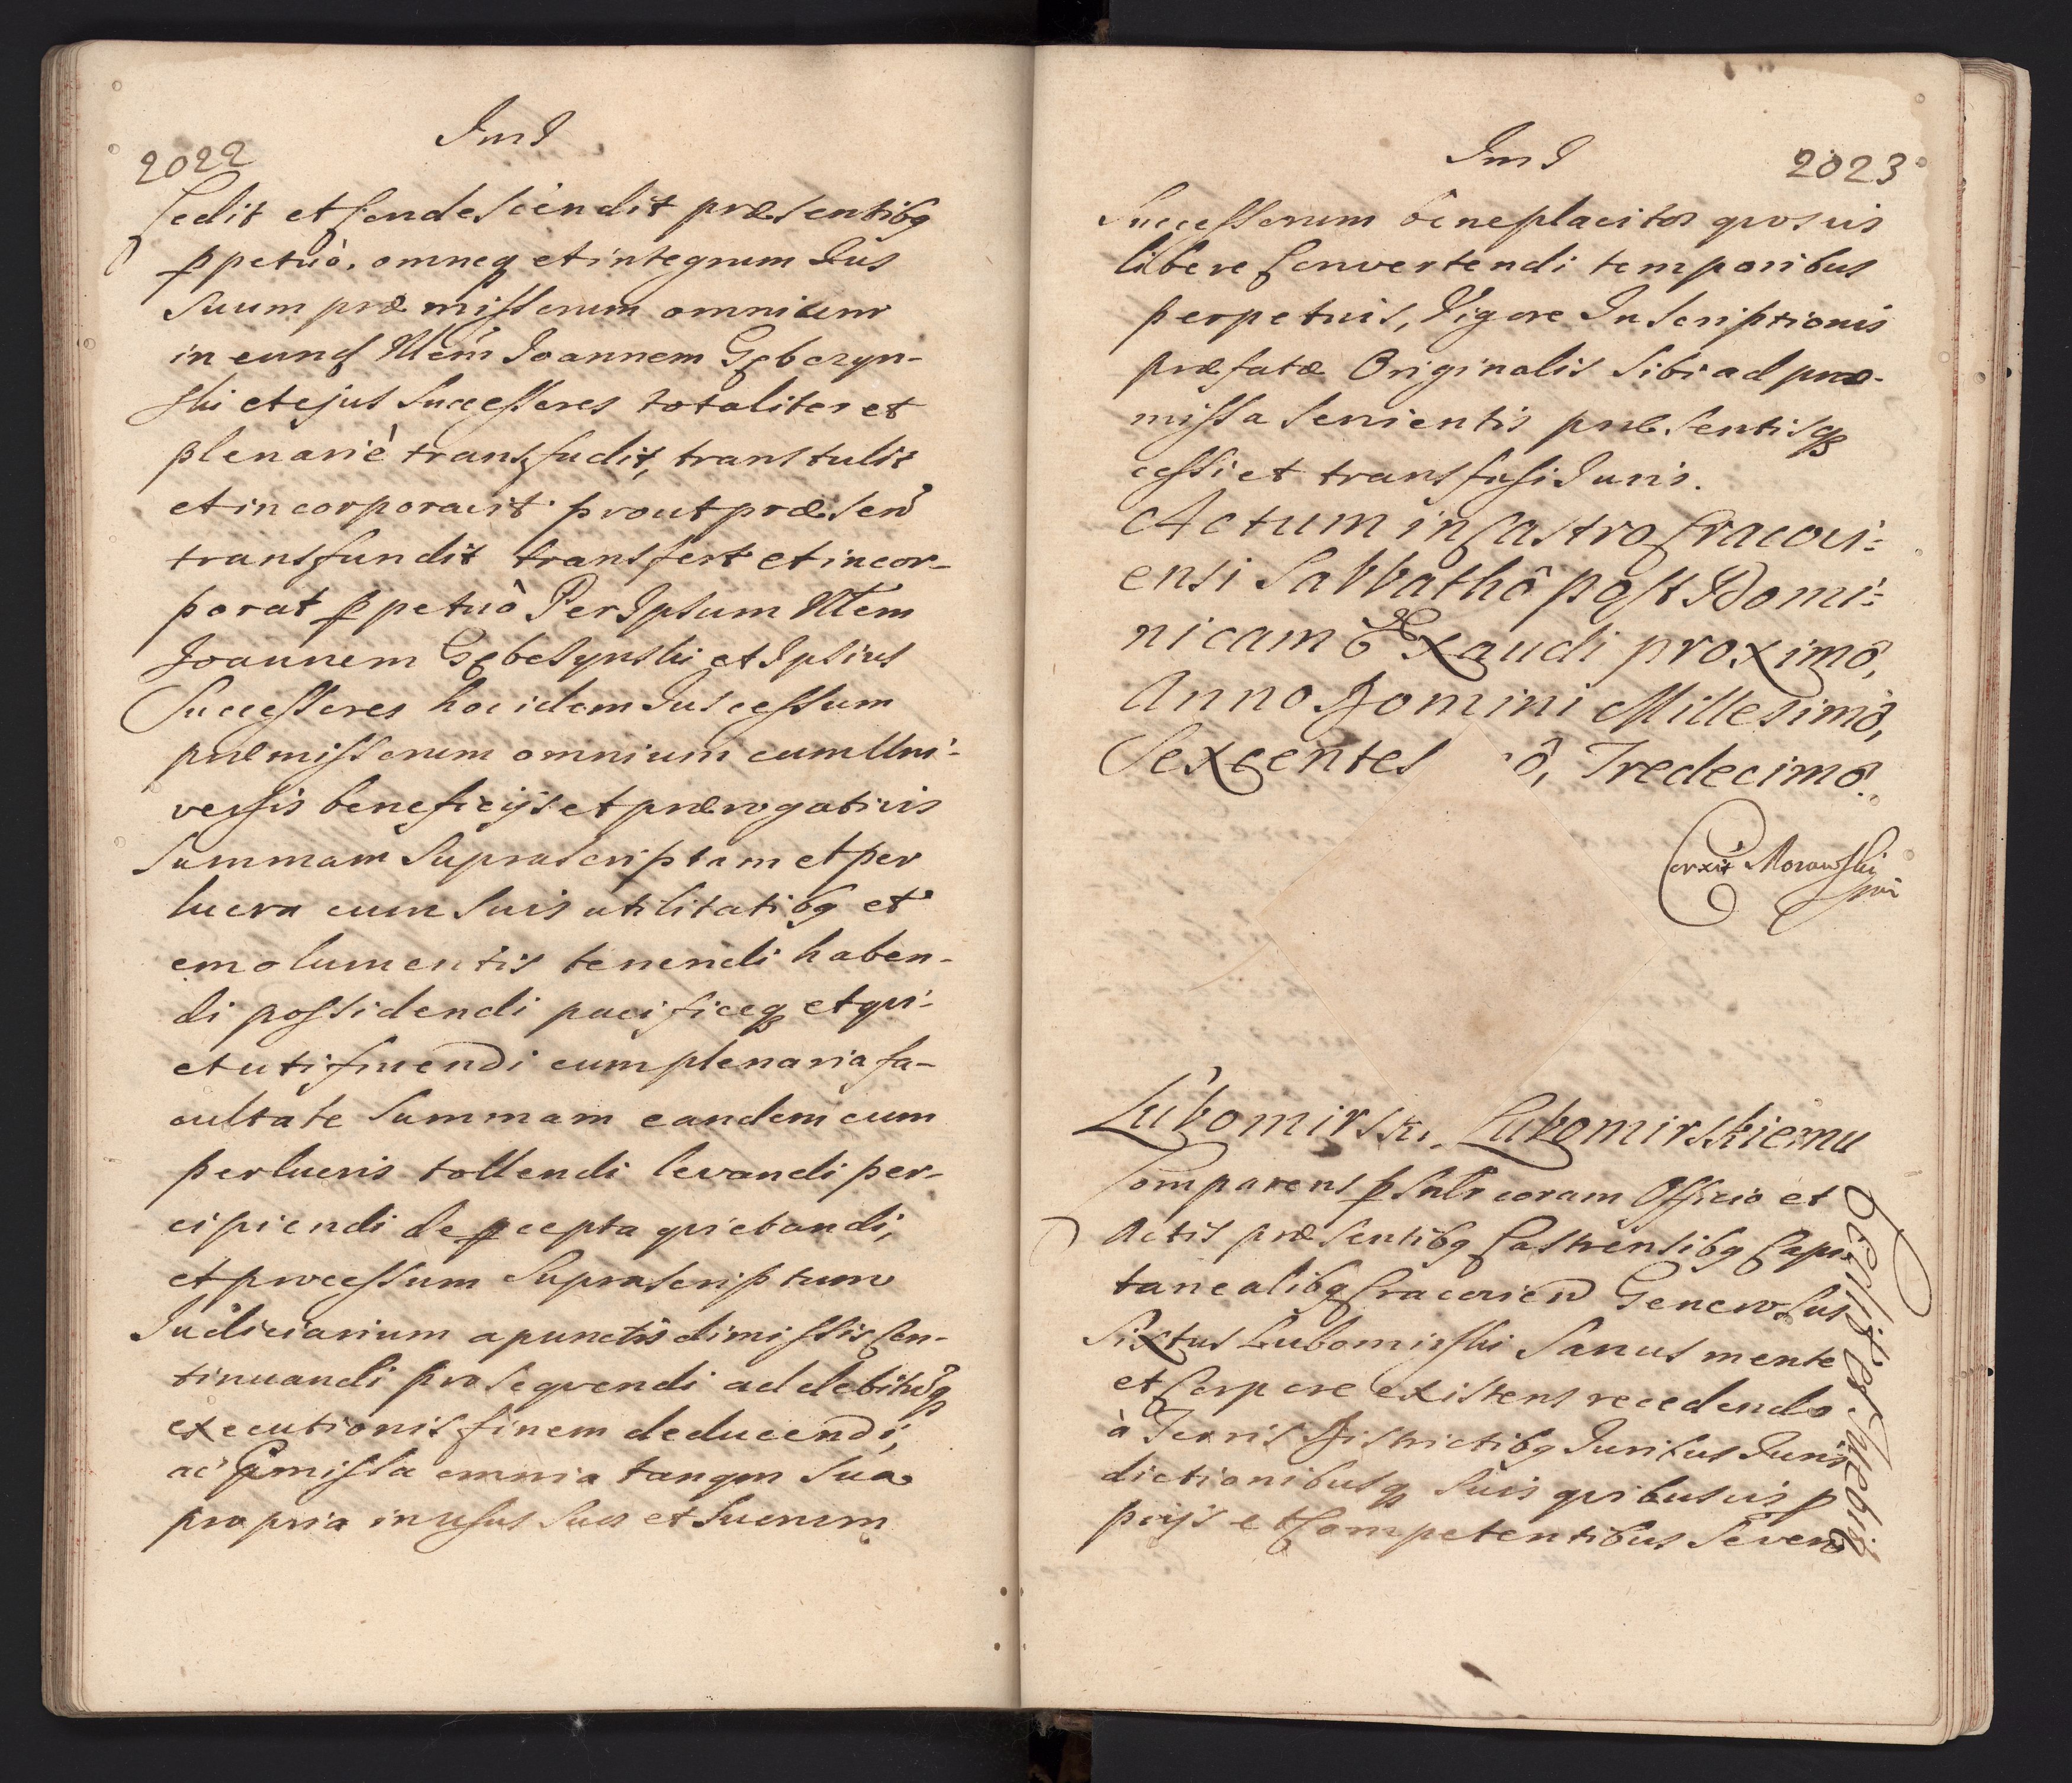 2022
Ims
Cedit et Condescendit præsentibq
ꝑpetuò, omneq et integrum Jus
Suum præmissorum omnium
in eund Nlem Joannem Gęboszyn-
ski et ejus Successores totaliter et
plenariè transfudit, transtulit
et incorporavit prout præsen
transfundit transfert et incor-
porat ꝑpetuò Per Ipsum Nlem
Joannem Gębosynski et Ipsius
Successores hoc idem Jus cessum
præmissorum omnium cum Uni-
versis beneficijs et prærogativis
Summam Suprascriptam et per
lucra cum Suis utilitatibq et
emolumentis tenendi haben-
di possidendi pacificeq et qvi-
et utifruendi cum plenaria fa-
cultate Summam eandem cum
perlucris tollendi levandi per-
cipiendi de ꝑcepta qvietandi,
et processum Suprascriptum
Judiciarium a punctis dimissis Con-
tinuandi proseqvendi ad debitumq
executionis finem deducendi,
ac p̄missa omnia tanqm Sua
propria in usus Suos et Suorum
Ims
2023
Successorum beneplacitos qvosvis
libere Convertendi temporibus
perpetuis, Vigore Inscriptionis
præfatæ Originalis Sibi ad præ-
missa Servientis præsentisq
cessi et transfusi Juris.
Actum in Castro Cracovi-
ensi Sabbathô post Domi-
nicam Exaudi proximô,
Anno Domini Millesimô,
Sexcentes ô, Tredecimô.
Corxit Morawski
mp
Lubomirski, Lubomirskiemu
Comparens ꝑsnlr coram Officio et
Actis præsentibq Castrensibq Capi-
tanealibq Cracovien Generosus
Sixtus Lubomirski Sanus mente
et Corpore existens recedendo
à Terris Districtibq Juribus Juris
dictionibusq Suis qvibusvis ꝓ
prijs et Competentibus Se vero